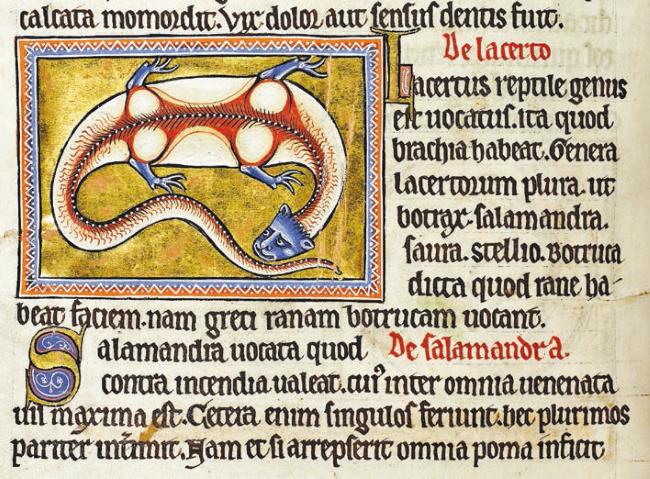 calcata momordit. Vix dolor aut sensus dentis fuit.
De lacerto
Lacertus reptile genus
est uocatus. ita quod
brachia habeat. Genera
lacertorum plura. ut
botrax. salamandra.
saura. stellio. Botruca
dicta quod rane ha-
beat faciem. nam greci ranam botrucam uocant.
Salamandra uocata quod De salamandra.
contra incendia ualeat. cui' inter omnia uenenata
uis maxima est. Cetera enim singulos feriunt. hec plurimos
pariter int'imit. Nam et si arrepserit omnia poma inficit